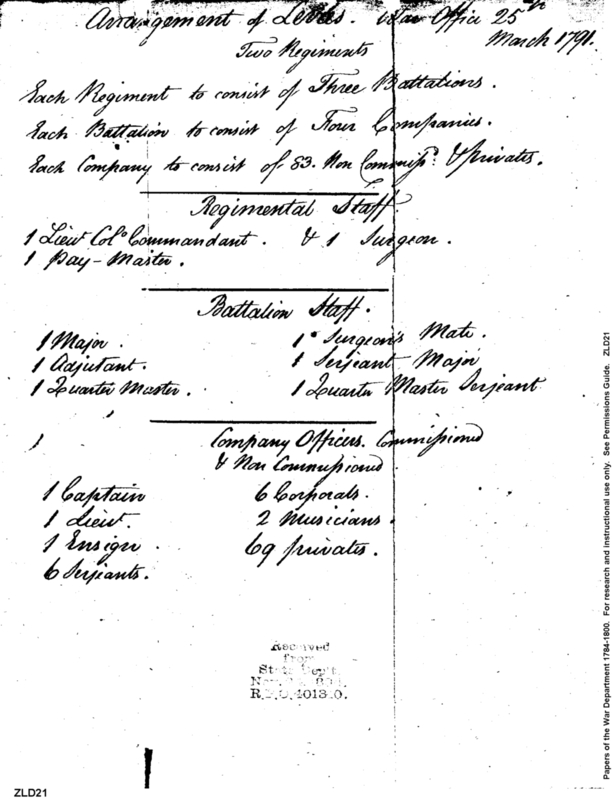 Arrangement of Levies. War Office 25th
March 1791.
Two Regiments
Each Regiment to consist of Three Battalions.
Each Battalion to consist of Four Companies.
Each Company to consist of 83. Non Commissd. & privates.
Regimental Staff.
1 Lieut Colo. Commandant. & 1 Surgeon.
1 Pay-Master.
Battalion Staff.
1 Major. 1 Surgeon's Mate.
1 Adjutant. 1 Serjeant Major
1 Quarter Master. 1 Quarter Master Serjeant
Company Officers. Commissioned
& Non Commissioned
1 Captain 6 Corporals.
1 Lieut. 2 Musicians.
1 Ensign 69 privates.
6 Serjeants.
Received
from
State Dep't.
R. 4013 O.
ZLD21
Papers of the War Department 1784-1800. For research and instructional use only. See Permissions Guide. ZLD21